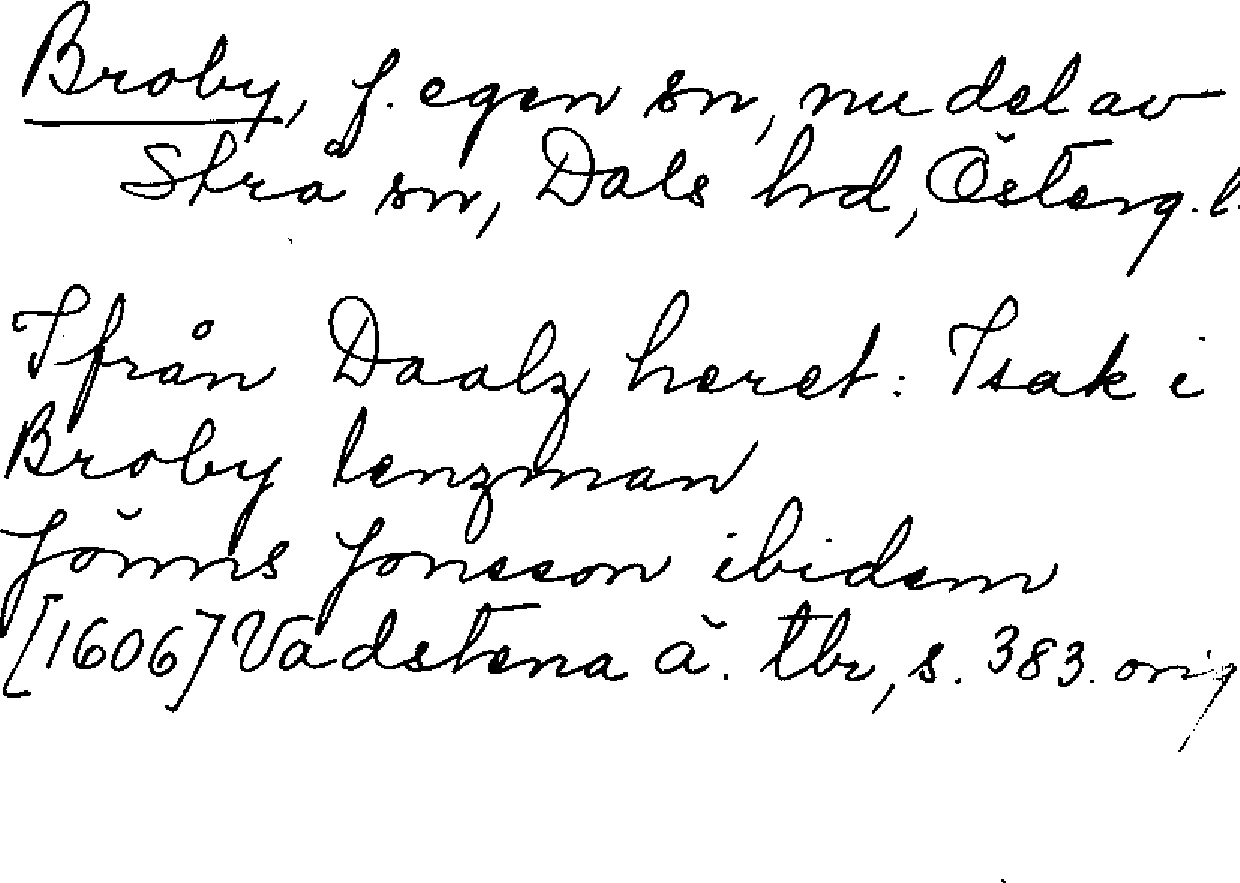 Broby, f. egen sn, nu del av
Strå sn, Dals hd, Österg.l.
Ifrån Daalz heret: Isak i
Broby lenzman
Jönns Jonsson ibidem
[1606] Vadstena ä. tbr, s. 383. orig